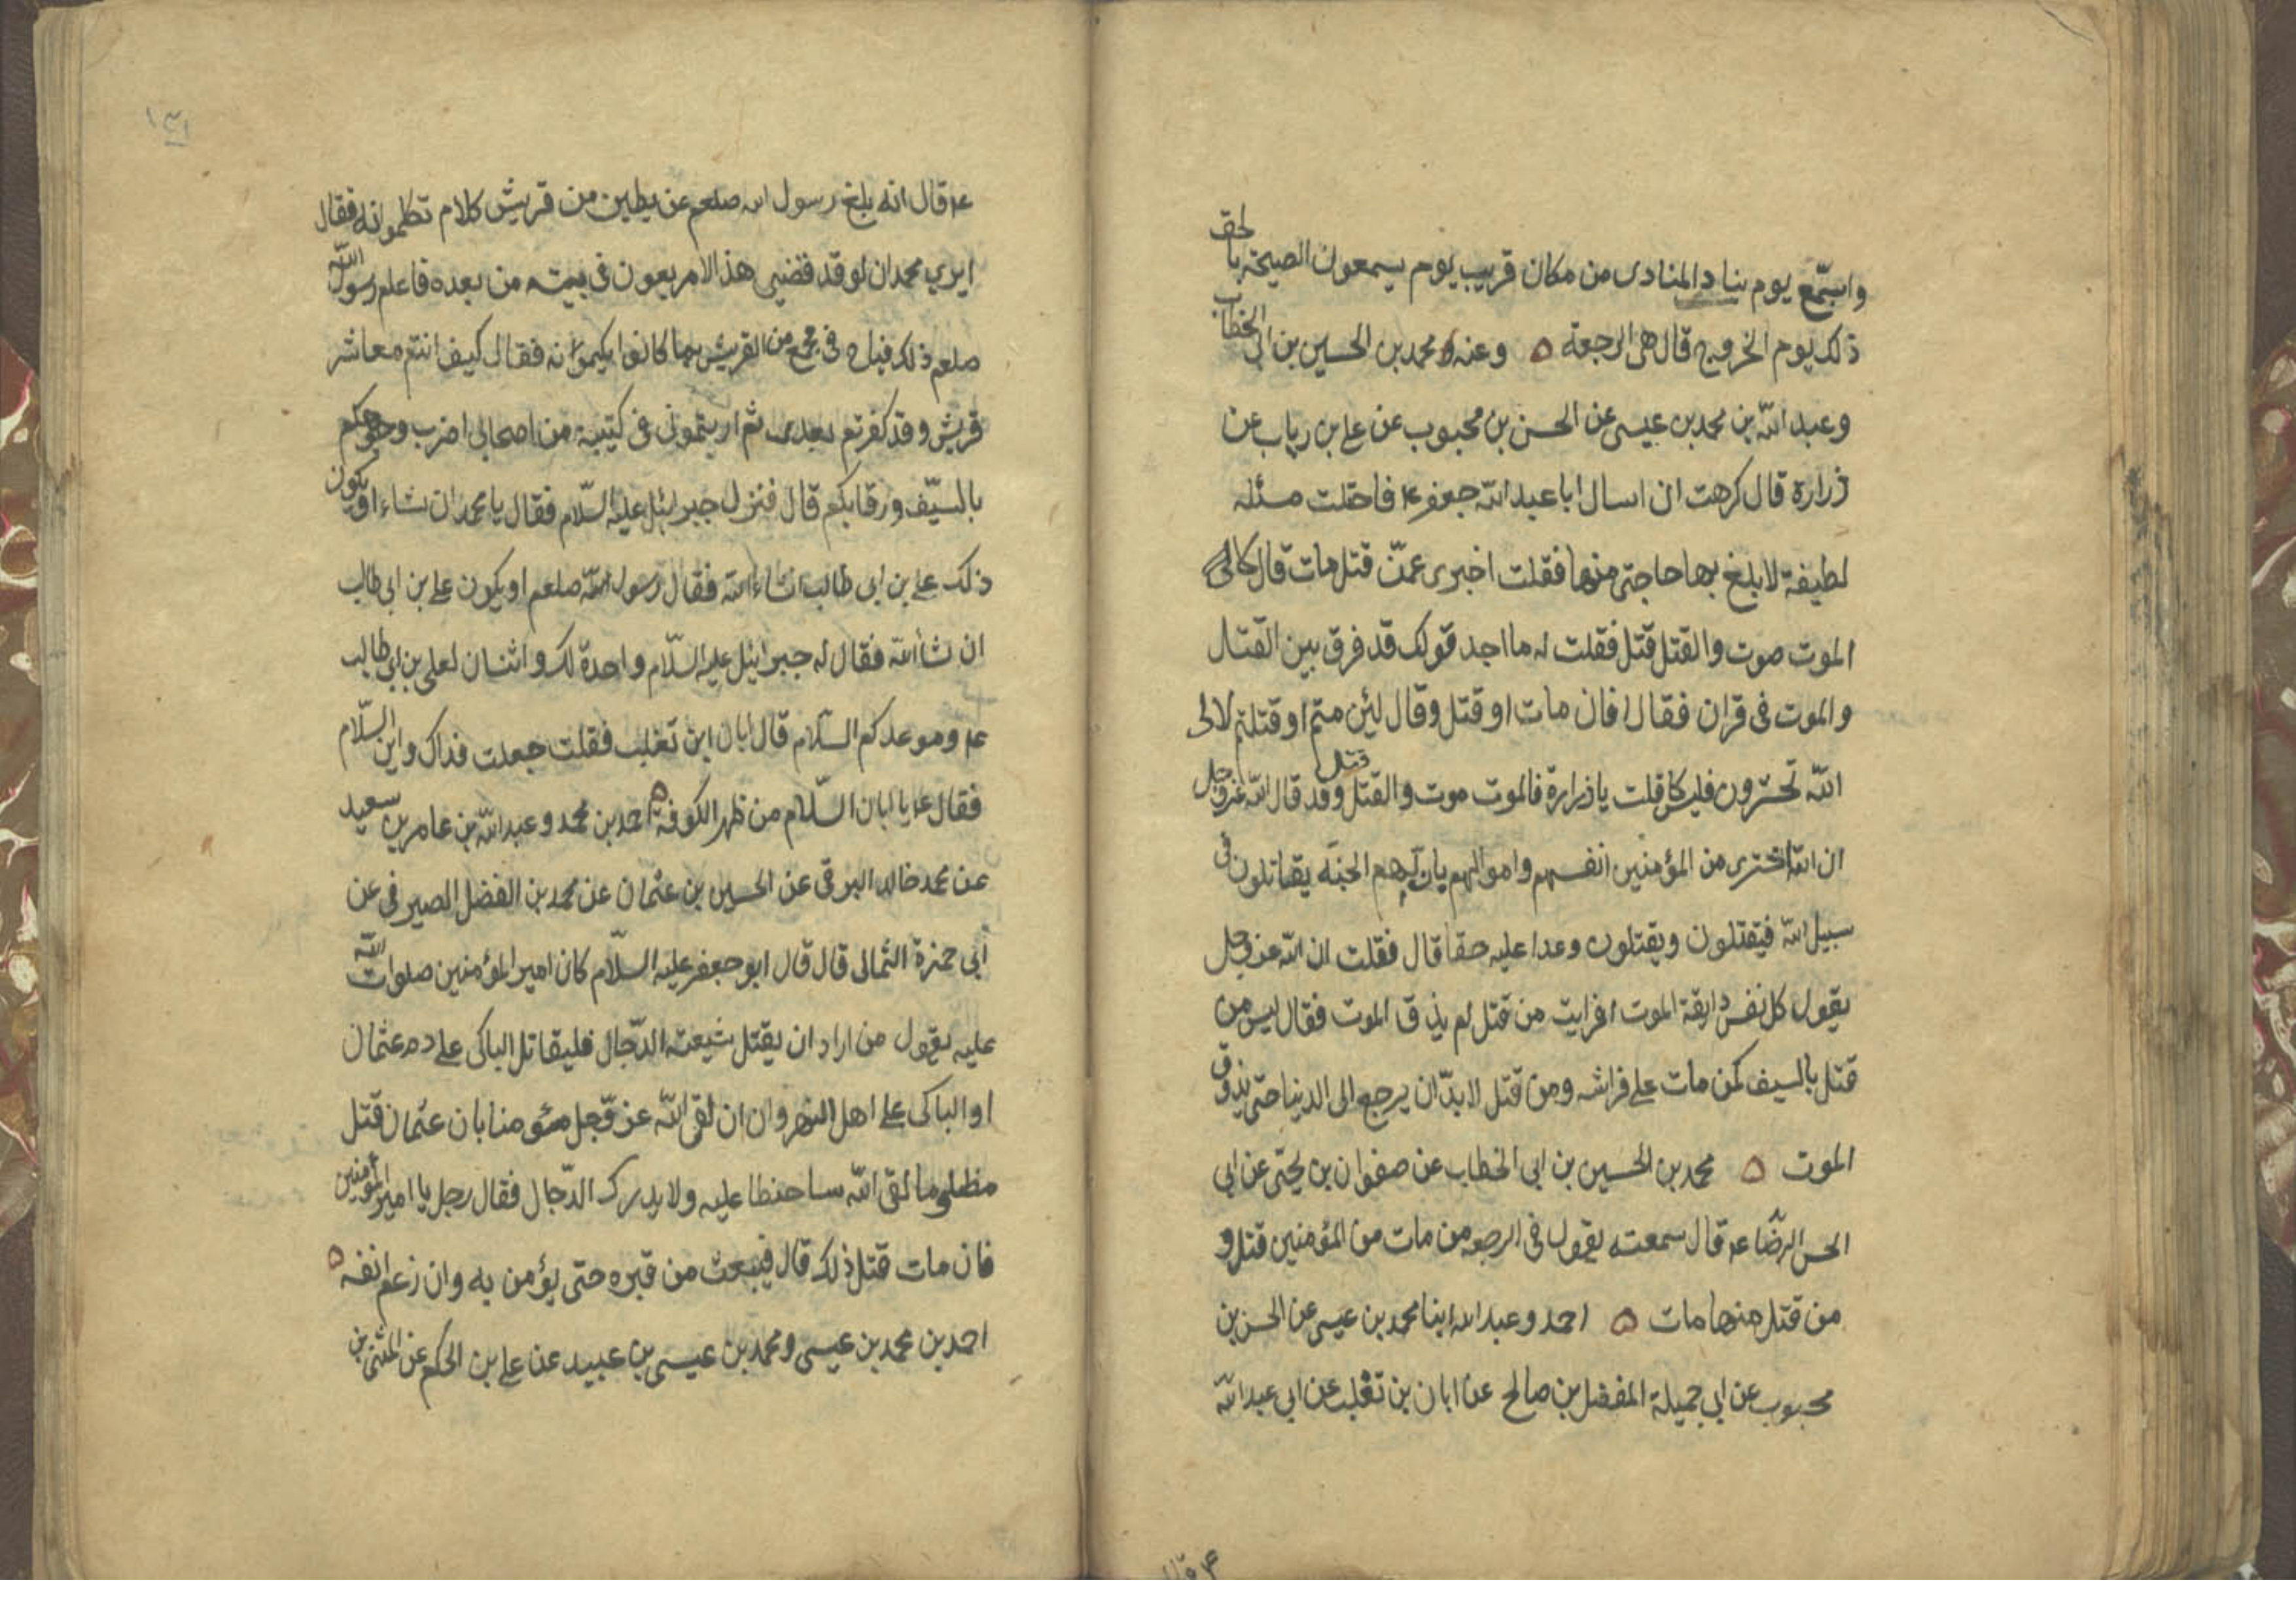 واستمع يوم يناد المنادى من مكان قريب يوم يسمعون الصيحة بالحق
ذلك يوم الخروج قال هى الرجعة ه وعنه محمد بن الحسين بن ابى الخطاب
وعبد الله بن محمد بن عيسى عن الحسن بن محبوب عن على بن رياب عن
زرارة قال كرهت ان اسال ابا عبد الله جعفر ع فاحتلت مسئله
لطيفة لابلغ بها حاجتى منها فقلت اخبرى عمّن قتل مات قال لا
الموت موت والقتل قتل فقلت له ما اجد قولك قد فرق بين القتال
والموت فى قران فقال افان مات او قتل وقال لئن متم او قتلتم لالى
الله تحشرون فليس كما قلت يا زرارة فالموت موت والقتل قتل وقد قال الله عز وجل
ان الله اشترى من المؤمنين انفسهم واموالهم بان لهم الجنه يقاتلون فى
سبيل الله فيقتلون ويقتلون وعدا عليه حقا قال فقلت ان الله عز وجل
يقول كل نفس ذايقة الموت افرايت من قتل لم يذق الموت فقال ليس من
قتل بالسيف كمن مات على فراشه ومن قتل لابدّ ان يرجع الى الدنيا حتى يذوق
الموت ه محمد بن الحسين بن ابى الخطاب عن صفوان بن يحيى عن ابى
الحسن الرضا ع قال سمعته يقول فى الرجعه من مات من المؤمنين قتل و
من قتل منها مات ه احمد وعبد الله ابنا محمد بن عيسى عن الحسن بن
محبوب عن ابى جميلة المفضل بن صالح عن ابان بن تغلب عن ابى عبد الله
ع قال
١٣١
ع قال انه بلغ رسول الله صلعم عن بطين من قريش كلام تكلموا به فقال
ايرى محمد ان لو قد قضيى هذا الامر يعون فى بيته من بعده فاعلم رسول الله
صلعم ذلك فباح فى مجمع من القريش بما كانوا يكتمونه فقال كيف انتم معاشر
قريش وقد كفرتم بعدى ثم اريتمونى فى كتيبة من اصحابى اضرب وجوهكم
بالسيّف ورقابكم قال فنزل جبرئيل عليه السّلام فقال يا محمد ان شاء او يكون
ذلك على بن ابى طالب انشاء الله فقال رسول الله صلعم او يكون على بن ابى طالب
ان شاء الله فقال له جبرائيل عليه السّلام واحدة لك واثنان لعلى بن ابى طالب
ع وموعدكم السلام قال ابان ابن تغلب فقلت جعلت فداك واين السّلام
فقال ع يا ابان السّلام من ظهر الكوفة ه احمد بن محمد وعبد الله بن عامر بن سعيد
عن محمد خالد البرقى عن الحسين بن عثمان عن محمد بن الفضل الصيرفى عن
ابى حمزة الثمالى قال قال ابو جعفر عليه السلّام كان امير المؤمنين صلوات الله
عليه يقول من اراد ان يقتل شيعت الدّجال فليقاتل الباكى على دم عثمان
او الباكى على اهل النهروان ان لقى الله عز وجل مؤمنا بان عثمان قتل
مظلوما لقى الله ساخطا عليه ولا يدرك الدّجال فقال رجل يا امير المؤمنين
فان مات قبل ذلك قال فيبعث من قبره حتى يؤمن به وان زعم انفه ه
احمد بن محمد بن عيسى ومحمد بن عيسى بن عبيد عن على بن الحكم عن المثنى بن